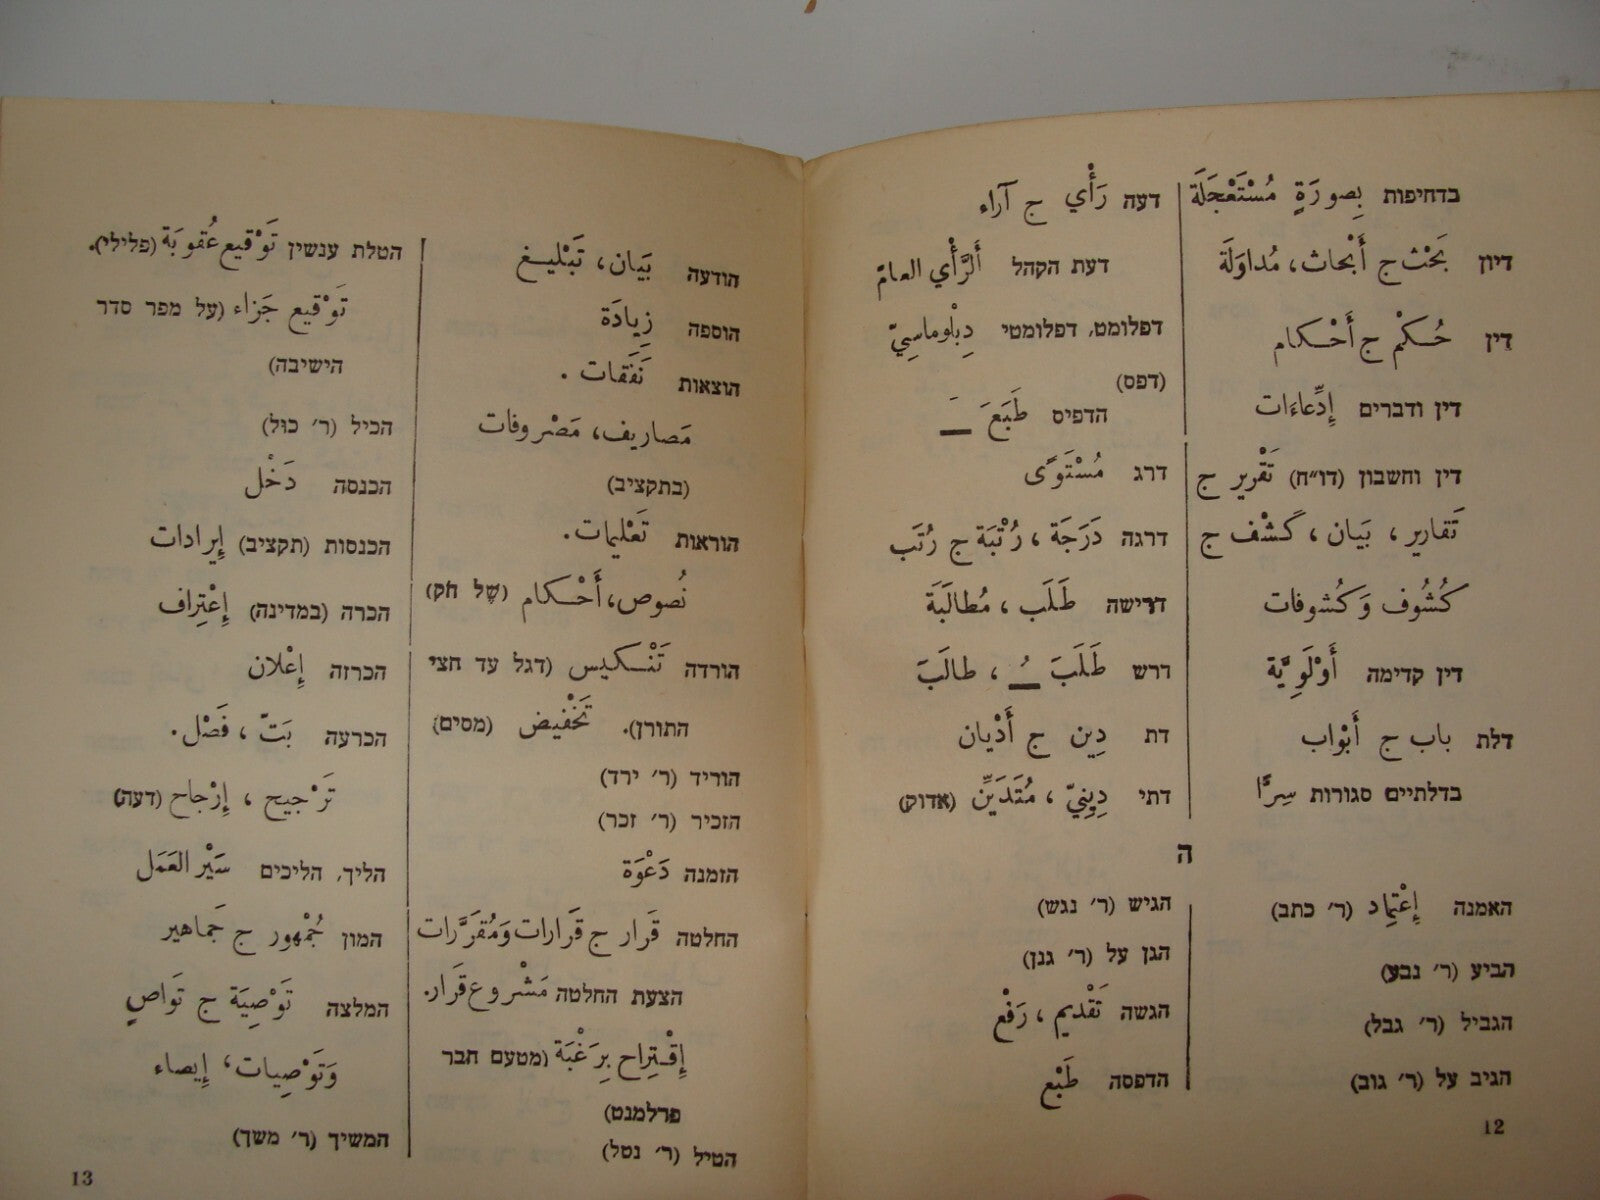 בדחיפות بِصورَةٍ مُسْتَعْجَلَة
דיון بَحْث ج أَبْحاث، مُداوَلَة
דין حُكْم ج أَحْكام
דין ודברים إِدِّعاءَات
דין וחשבון (דו״ח) تَقْرير ج
تَقارير، بَيان، كَشْف ج
كُشُوف وَكُشوفات
דין קדימה أَوْلَوِيَّة
דלת باب ج أَبْواب
בדלתיים סגורות سِرًّا
האמנה إِعْتِماد (ר׳ כתב)
הביע (ר׳ נבע)
הגביל (ר׳ גבל)
הגיב על (ר׳ גוב)
12
דעה رَأْي ج آراء
דעת הקהל أَلرَّأْي العامّ
דפלומט, דפלומטי دِبْلوماسِيّ
(דפס)
הדפיס طَبَعَ ـَـ
דרג مُسْتَوًى
דרגה دَرَجَة، رُتْبَة ج رُتَب
דרישה طَلَب، مُطالَبَة
דרש طَلَبَ ـُـ، طالَبَ
דת دِين ج أَدْيان
דתי دِينِيّ، مُتَدَيِّن (אדוק)
ה
הגיש (ר׳ נגש)
הגן על (ר׳ גנן)
הגשה تَقْديم، رَفْع
הדפסה طَبْع
הודעה بَيَان، تَبْليغ
הוספה زِيادَة
הוצאות نَفَقات.
مَصاريف، مَصْروفات
(בתקציב)
הוראות تَعْليمات.
نُصوص، أَحْكام (של חק)
הורדה تَنْكيس (דגל עד חצי
התורן). تَخْفيض (מסים)
הוריד (ר׳ ירד)
הזכיר (ר׳ זכר)
הזמנה دَعْوَة
החלטה قَرار ج قَرارات وَمُقَرَّرات
הצעת החלטה مَشْروع قَرار.
إِقْتِراح بِرَغْبَة (מטעם חבר
פרלמנט)
הטיל (ר׳ נטל)
הטלת ענשין تَوْقيع عُقوبَة (פלילי).
تَوْقيع جَزاء (על מפר סדר
הישיבה)
הכיל (ר׳ כול)
הכנסה دَخْل
הכנסות (תקציב) إِيرادات
הכרה (במדינה) إِعْتِراف
הכרזה إِعْلان
הכרעה بَتّ، فَصْل.
تَرْجيح، إِرْجاح (דעה)
הליך, הליכים سَيْر العَمَل
המון جُمْهور ج جَماهير
המלצה تَوْصِيَة ج تَواصٍ
وَتَوْصِيات، إِيصاء
המשיך (ר׳ משך)
13